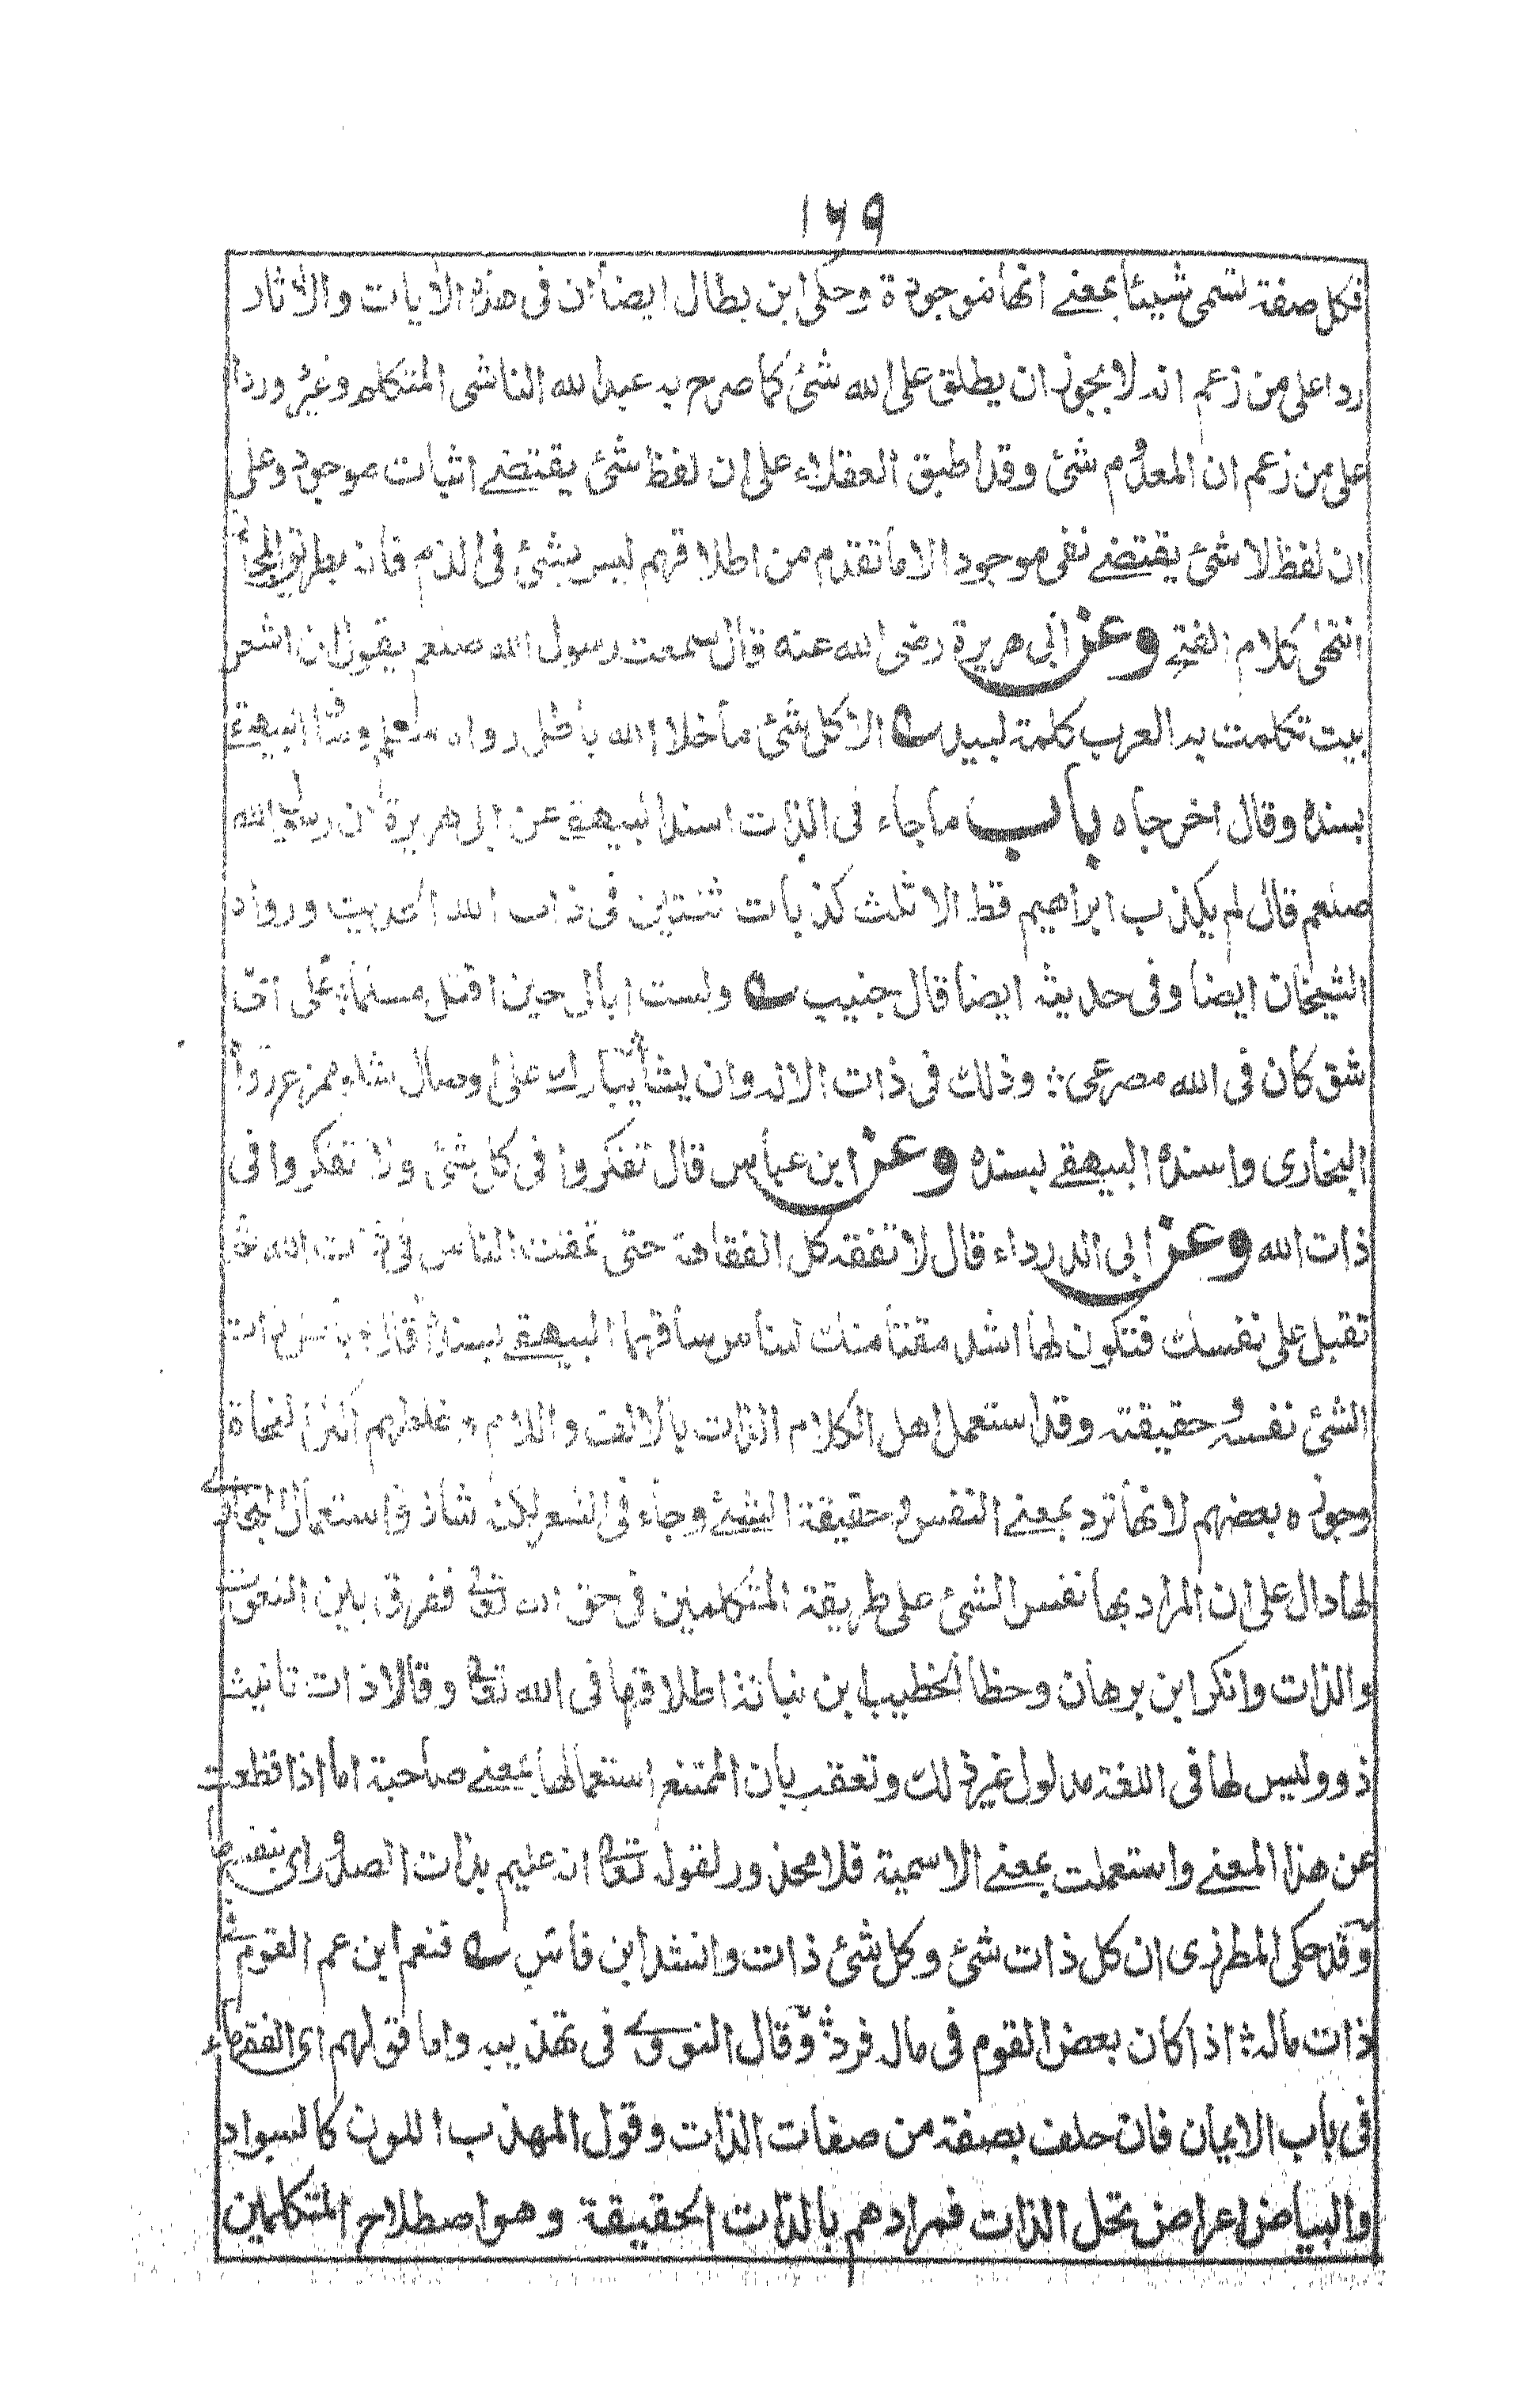 ١٦٩
فكل صفة تسمى شيئا بمعنے انها موجودة وحكى ابن بطال ايضا ان فى هذه الايات والاثار
ردا على من زعم انه لا يجوز ان يطلق على الله شئ كما صرح به عبد الله الناشى المتكلم وغيره وردا
على من زعم ان المعدوم شئ وقد اطبق العقلاء على ان لفظ شئ يقتضے اثبات موجود وعلى
ان لفظ لا شئ يقتضے نفى موجود الا ما تقدم من اطلاقهم ليس بشئ فى الذم فانه بطريق المجاز
انتهى كلام الفتح وعن ابى هريرة رضى الله عنه قال سمعت رسول الله صلعم يقول ان اشعر
بيت تكلمت به العرب كلمة لبيد ؎ الا كل شئ ما خلا الله باطل رواه مسلم البيهقے
بسنده وقال اخرجاه باب ما جاء فى الذات اسند البيهقے عن ابى هريرة ان رسول الله
صلعم قال لم يكذب ابراهيم قط الا ثلث كذبات ثنتين فى ذات الله الحديث ورواه
الشيخان ايضا وفى حديثه ايضا قال خبيب ؎ ولست ابالى حين اقتل مسلما ؞ على اى
شق كان فى الله مصرعى ؞ وذلك فى ذات الاله وان يشأ ؞ يبارك على اوصال شلو ممزع رواه
البخارى واسنده البيهقے بسنده وعن ابن عباس قال تفكروا فى كل شئ ولا تفكروا فى
ذات الله وعن ابى الدرداء قال لا تفقه كل الفقاهة حتى تمقت الناس فى ذات الله ثم
تقبل على نفسك فتكون لها اشد مقتا منك للناس ساقهما البيهقے بسنده قال ذات
الشئ نفسه وحقيقته وقد استعمل اهل الكلام الذات بالالف واللام وغلطهم اكثر النحاة
وجوزه بعضهم لانها ترد بمعنے النفس وحقيقة الشئے وجاء فى الشعر لكنه شاذ واستعمال البخارے
لها دال على ان المراد بها نفس الشئ على طريقة المتكلمين فى حق الله تعالى ففرق بين النعوت
والذات وانكر ابن برهان وخطأ الخطيب ابن نباتة اطلاقها فى الله تعالى وقالا ذات تانيث
ذو وليس لها فى اللغة مدلول غير ذلك وتعقب بان الممتنع استعمالها بمعنے صاحبة اما اذا قطعت
عن هذا المعنے واستعملت بمعنے الاسمية فلا محذور لقوله تعالى انه عليم بذات الصدور اى بنفسها
وقد حكى المطرزى ان كل ذات شئ وكل شئ ذات وانشد ابن فارس ؎ فنعم ابن عم القوم فے
ذات ماله ؞ اذا كان بعض القوم فى ماله فرد ؞ وقال النووے فى تهذيبه واما قولهم اى الفقهاء
فى باب الايمان فان حلف بصفة من صفات الذات وقول المهذب اللون كالسواد
والبياض اعراض تحل الذات فمرادهم بالذات الحقيقة وهو اصطلاح المتكلمين